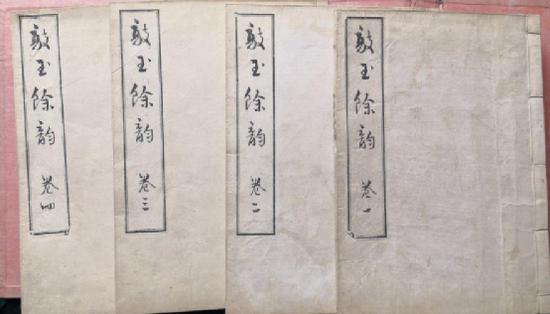 敲玉餘韵 卷一
敲玉餘韵 卷二
敲玉餘韵 卷三
敲玉餘韵 卷四